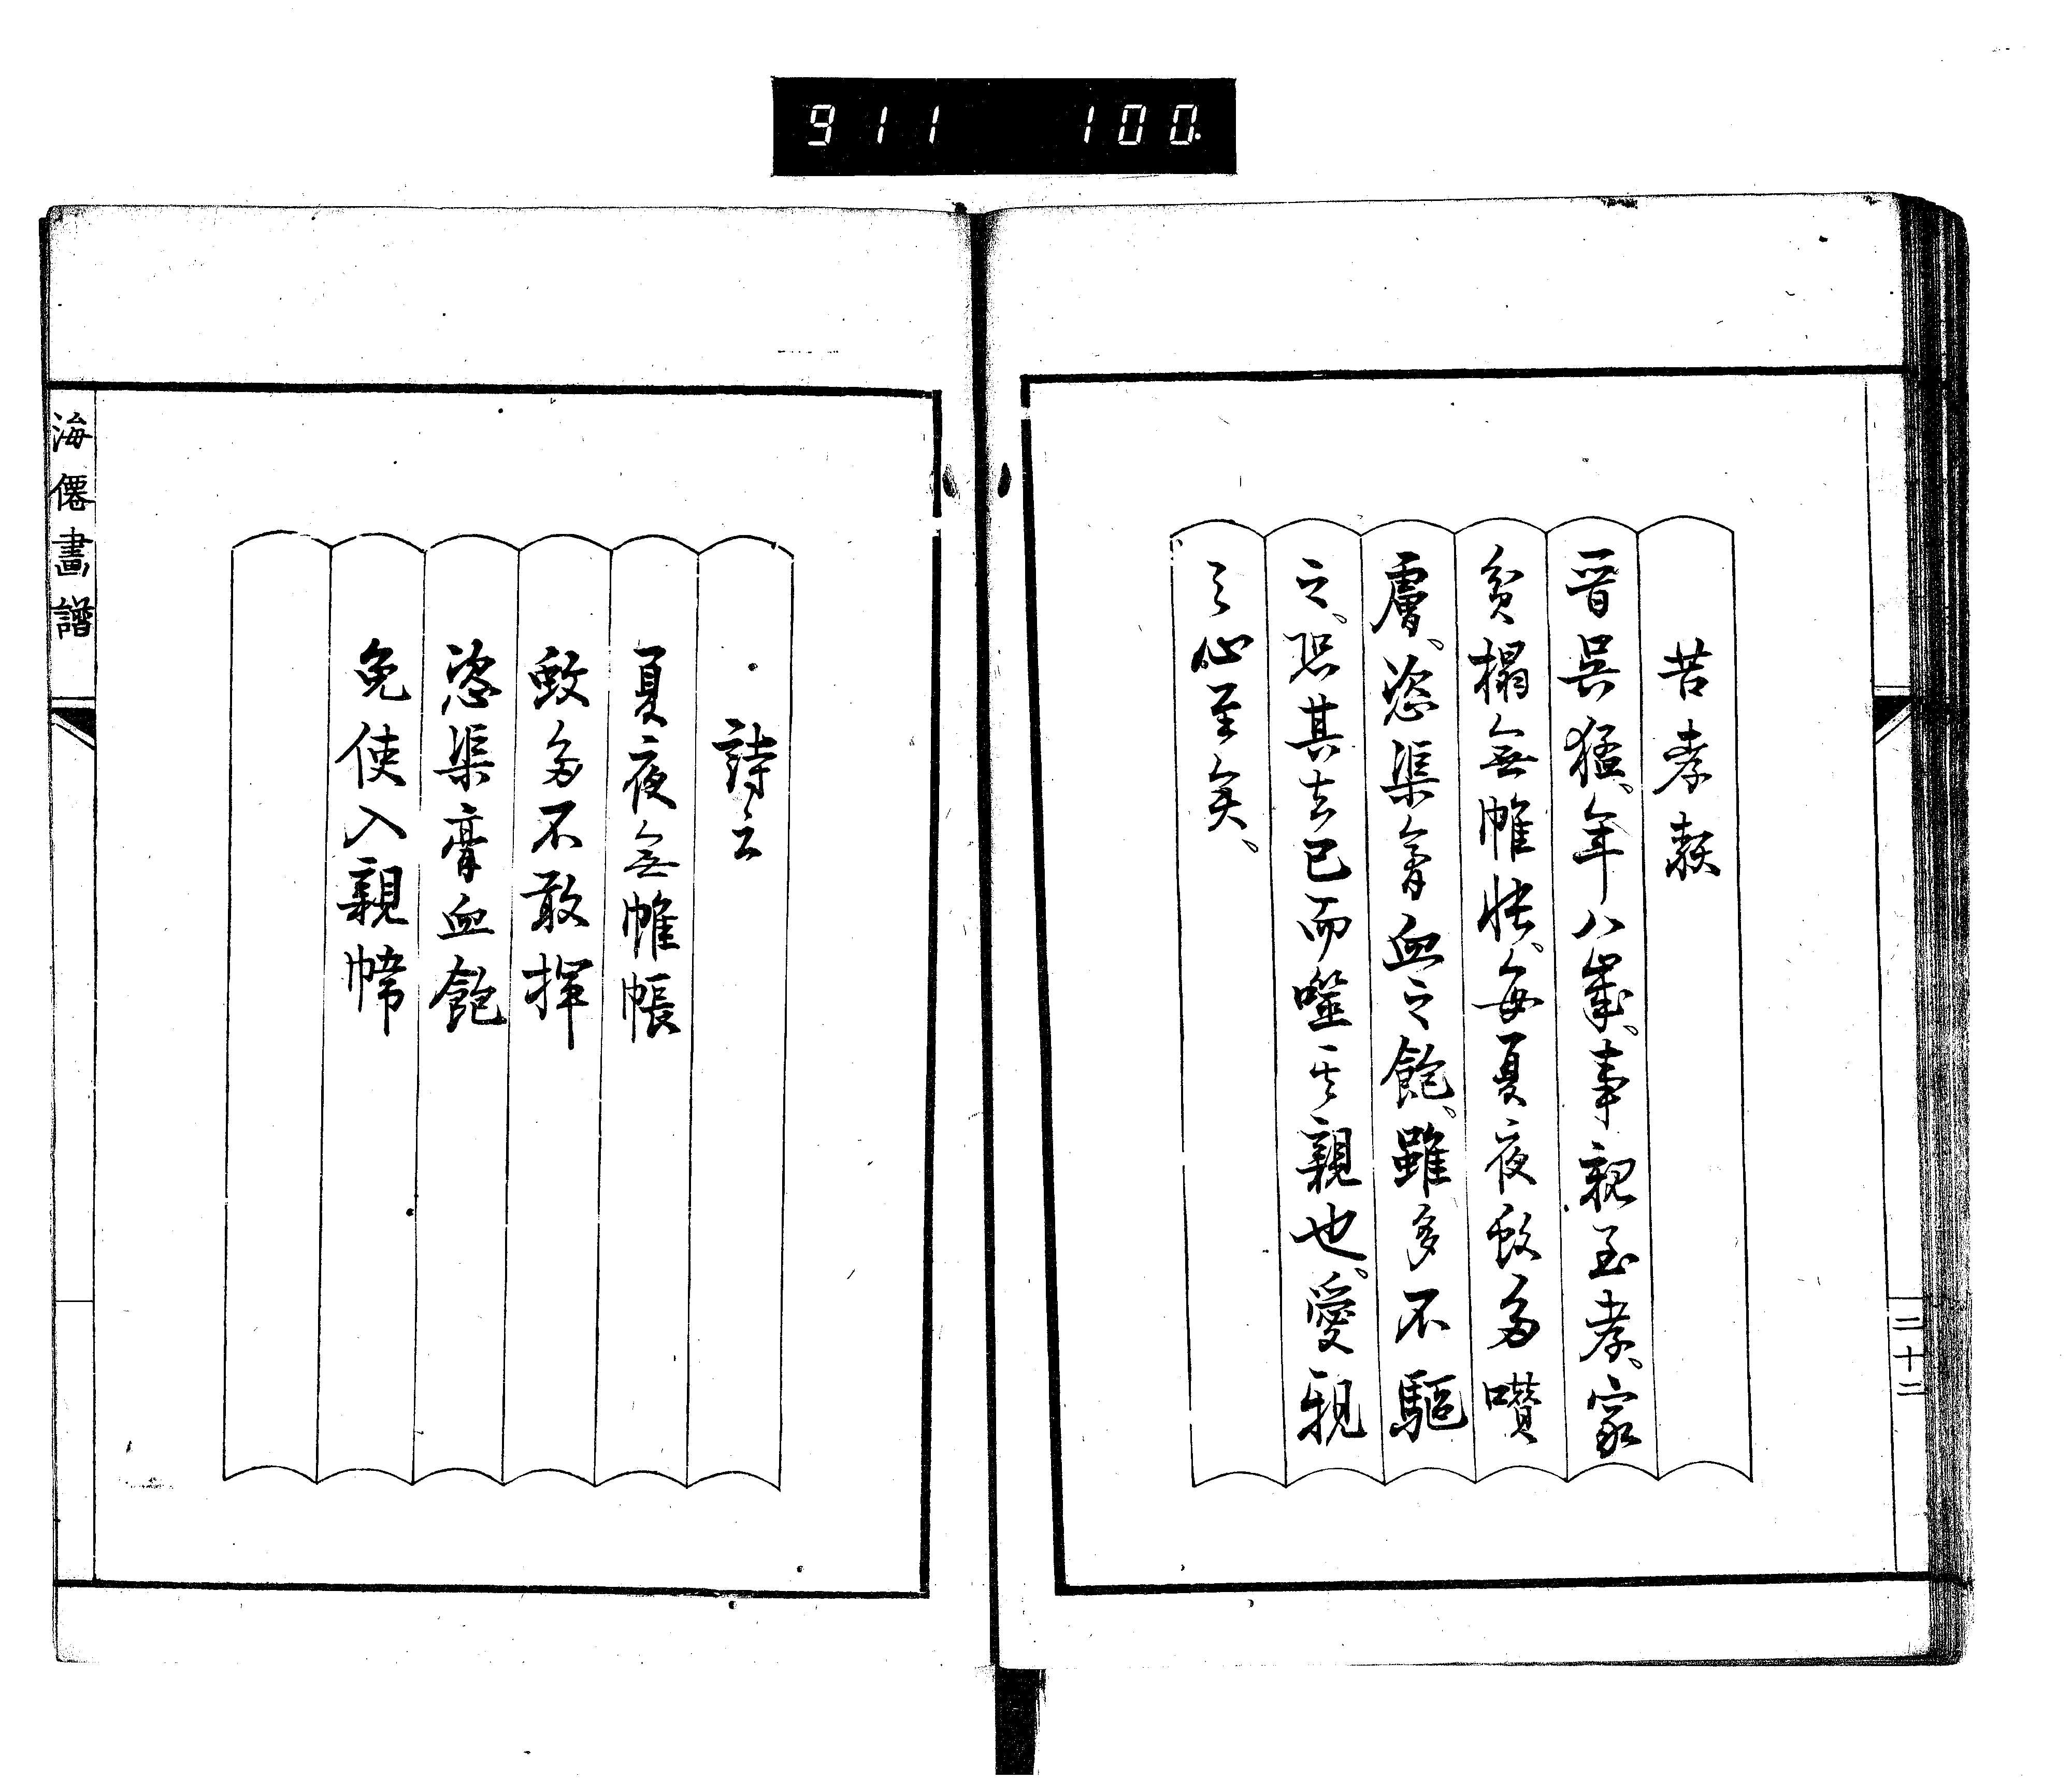 911 100.
二十二
苦孝類
晋吳猛、年八歲。事親至孝。家
貧榻無帷帳。每夏夜蚊多噆
膚、恣渠膏血之飽。雖多不驅
之、恐其去已而噬其親也。愛親
之心至矣、
詩云
夏夜無帷帳
蚊多不敢揮
恣渠膏血飽
免使入親幃
海僊畫譜